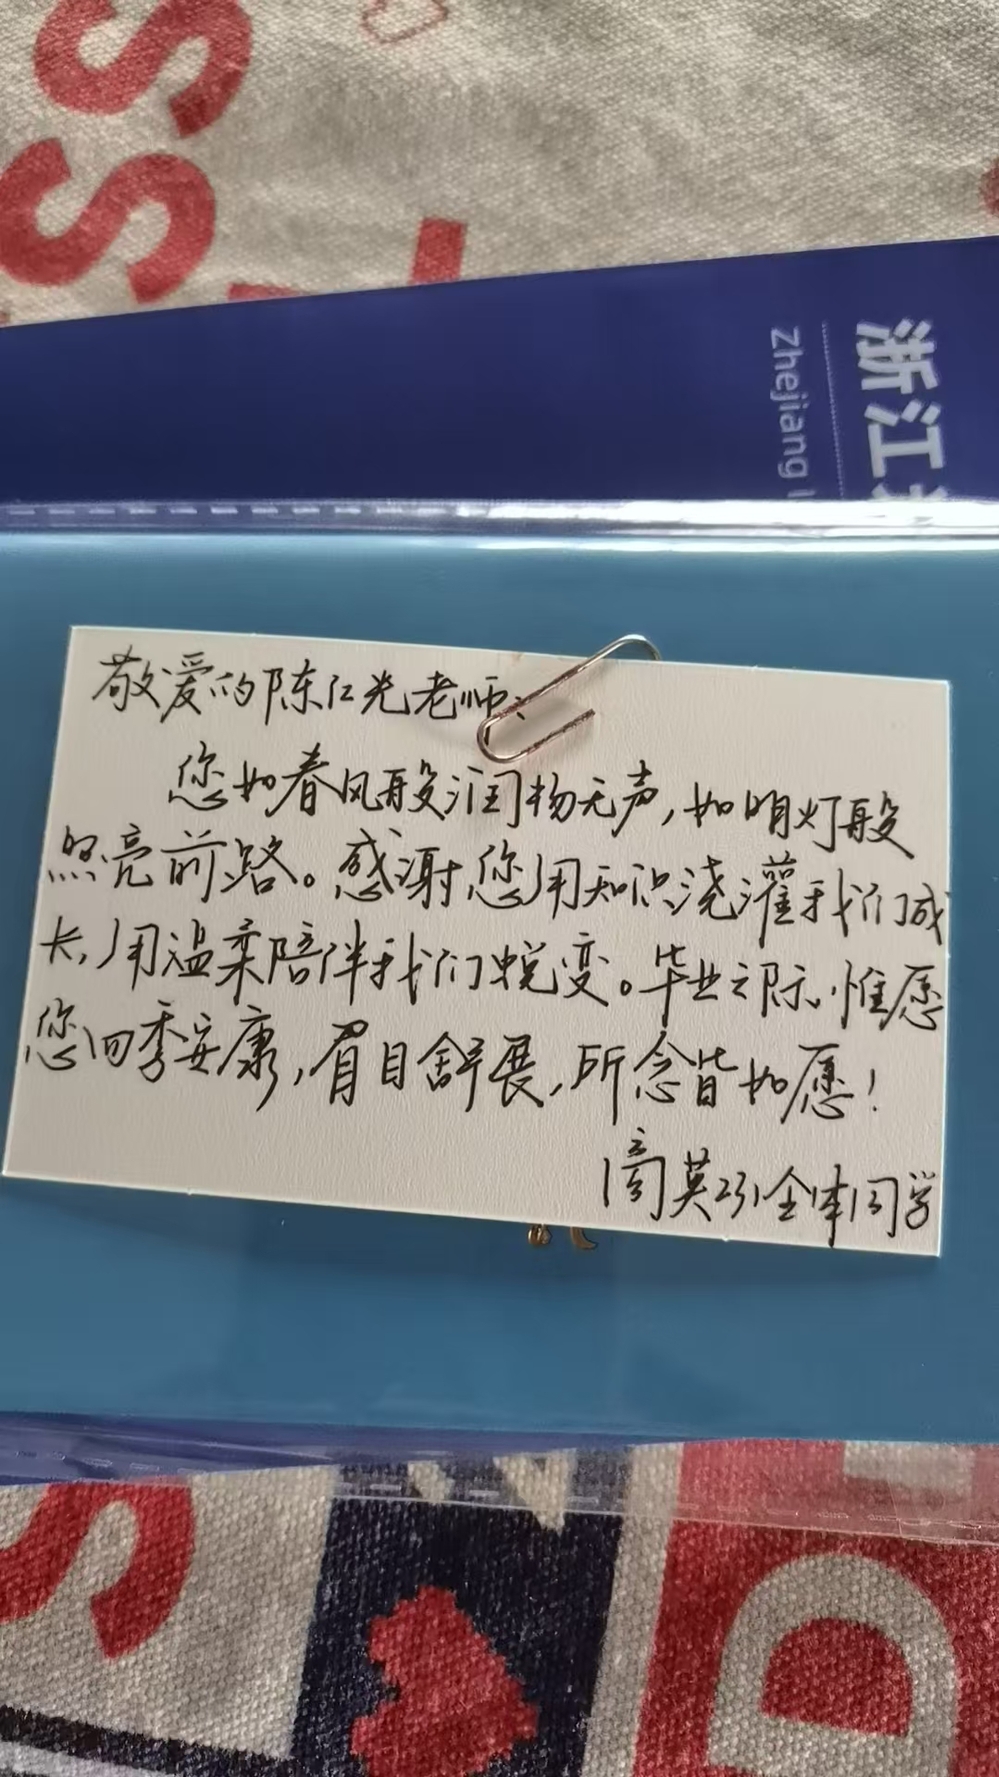 浙江
zhejiang
敬爱的陈仁光老师:
您如春风般润物无声,如明灯般
照亮前路。感谢您用知识浇灌我们成
长,用温柔陪伴我们蜕变。毕业之际,惟愿
您四季安康,眉目舒展,所念皆如愿!
商英231全体同学
S
S
S
D